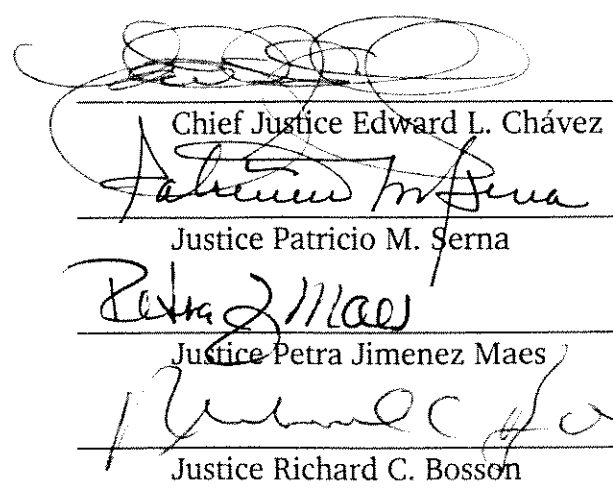 Chief Justice Edward L. Chávez
Patricio M. Serna
Justice Patricio M. Serna
Petra J Maes
Justice Petra Jimenez Maes
Justice Richard C. Bosson